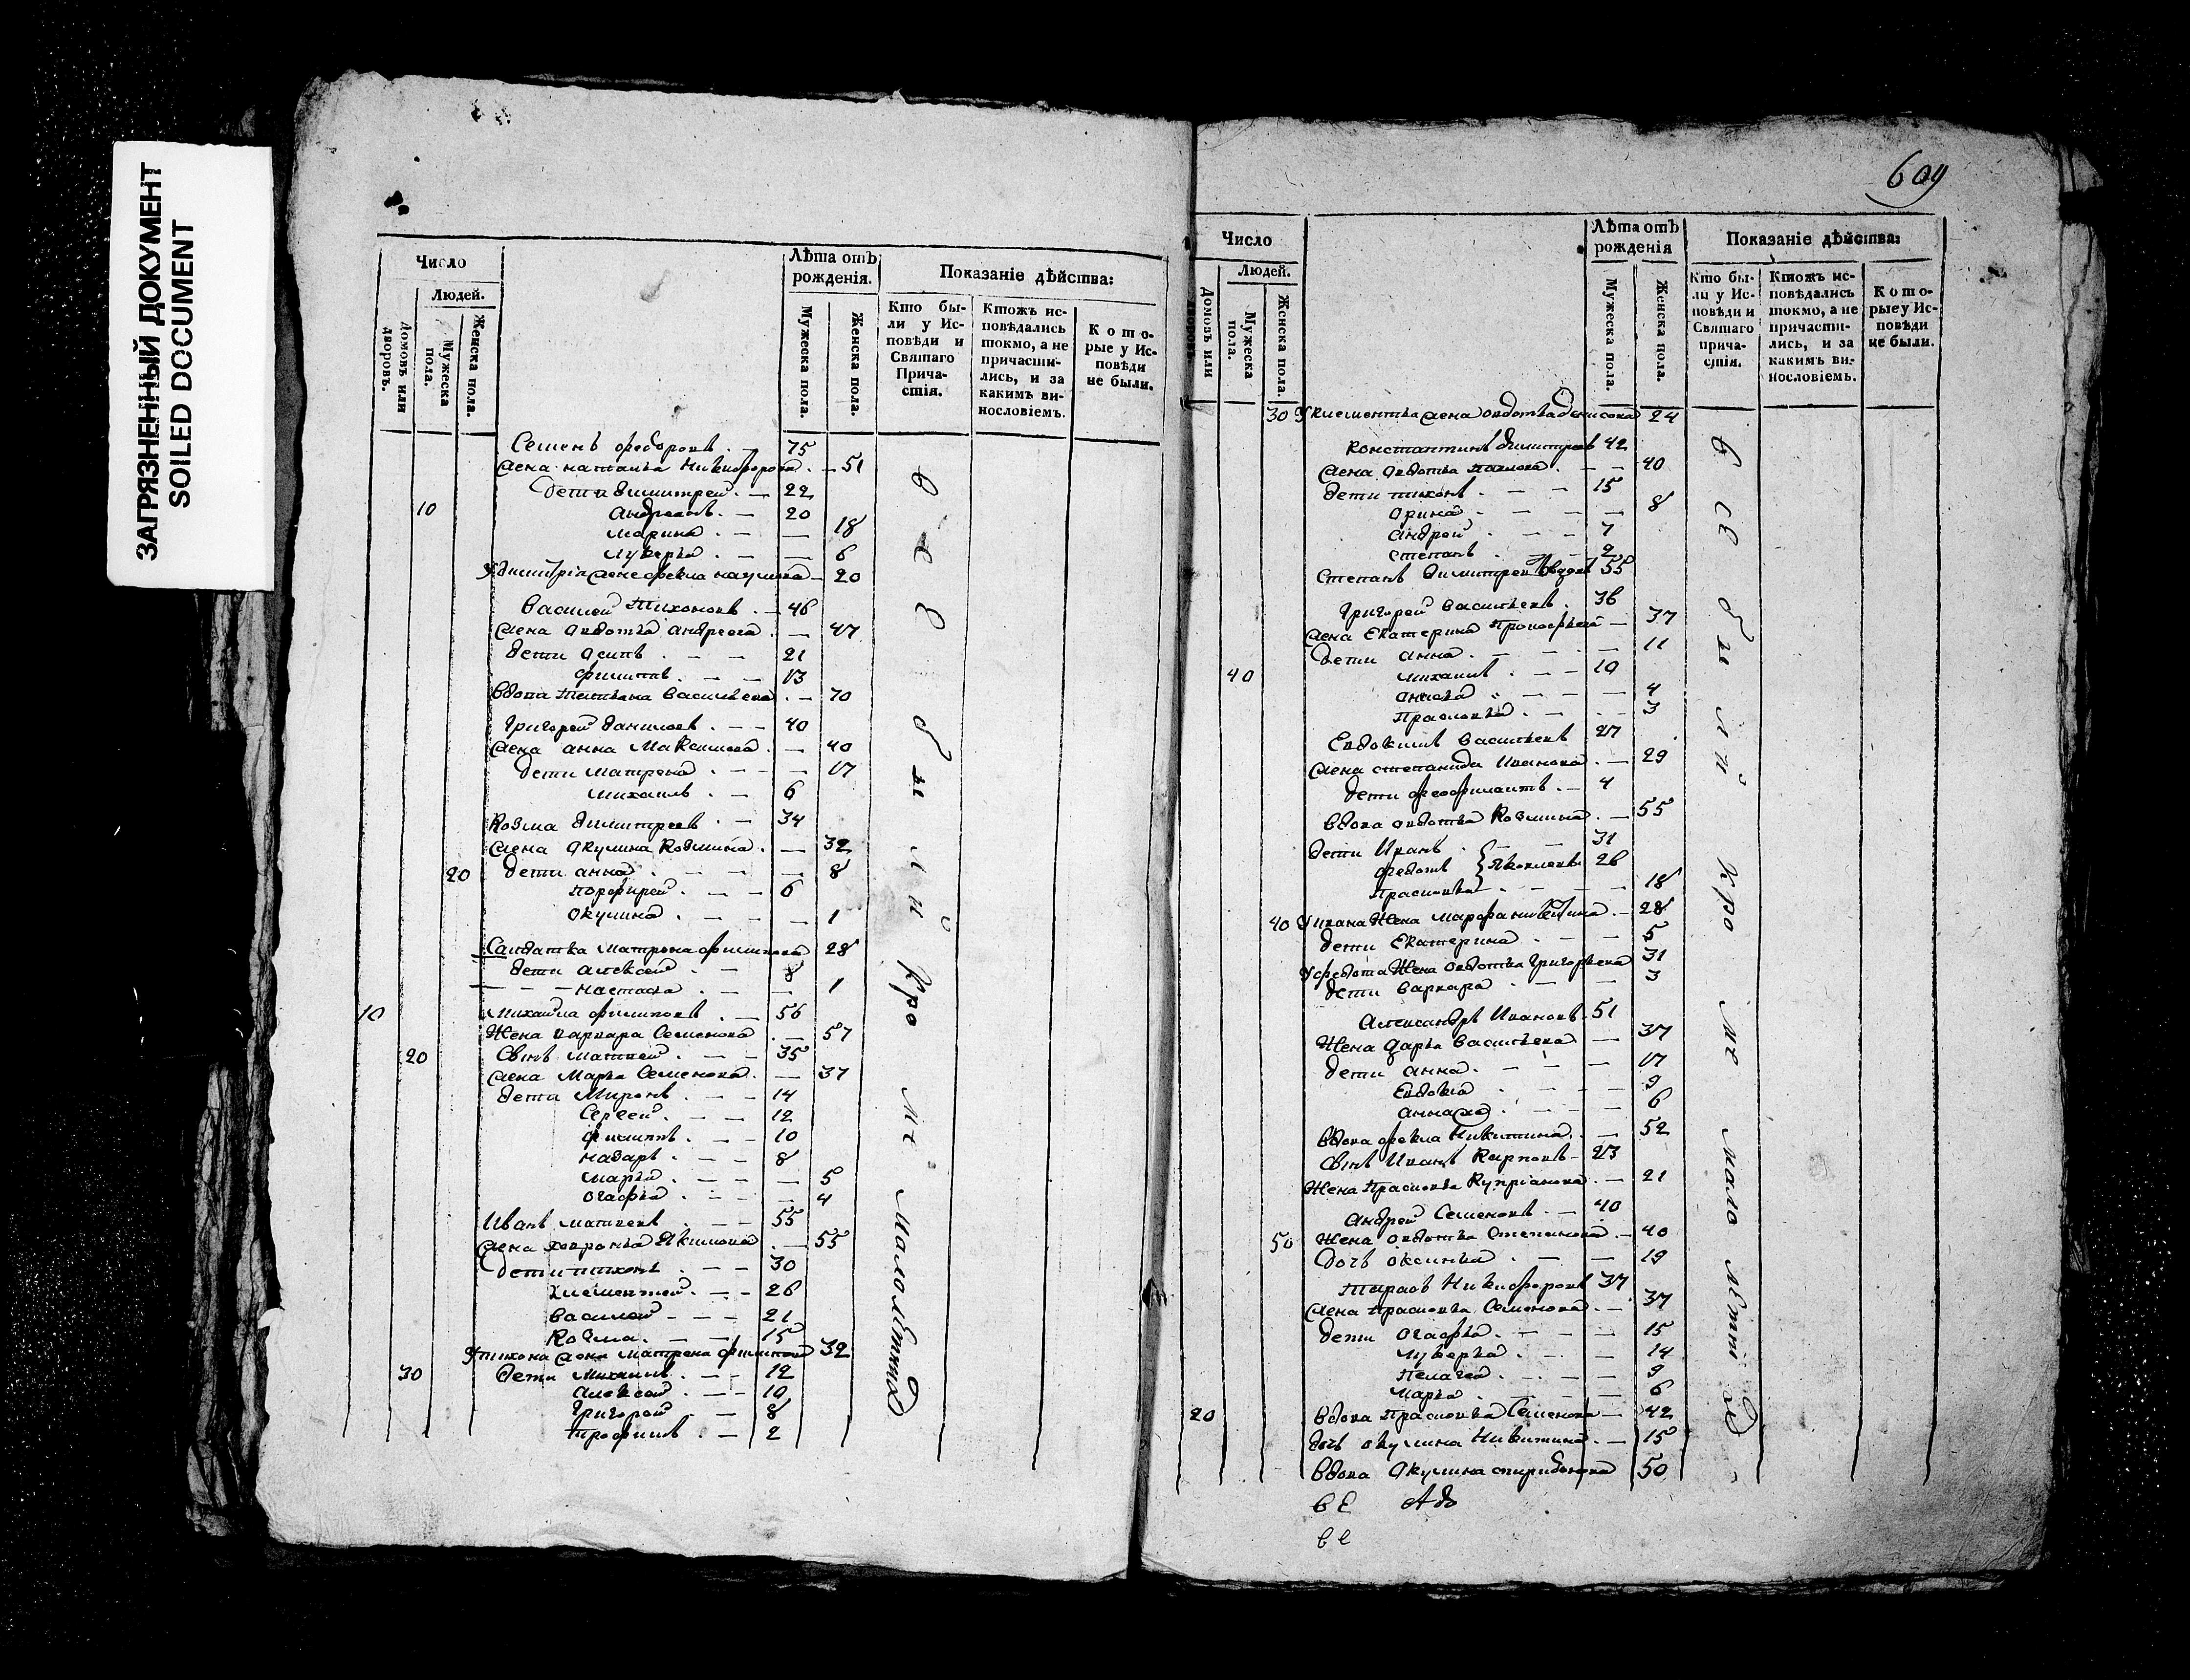 ЗАГРЯЗНЕННЫЙ ДОКУМЕНТ
SOILED DOCUMENT
Число
Людей.
Домовъ или дворовъ.
Мужеска пола.
Женска пола.
Лѣта отъ рожденія.
Мужеска пола.
Женска пола.
Показаніе дѣйства:
Кто были у Исповѣди и Святаго Причастія.
Ктожъ исповѣдались токмо, а не причастились, и за какимъ винословіемъ.
Которые у Исповѣди не были.
Семенъ федоровъ. — 75
жена наталья Никифорова. — 51
дети димитрей. — 22
10 Андреянъ. — 20
марина. — — 18
лукерья — — 6
У димитрія жена фекла наумова — 20
василей Тихоновъ. — 46
жена авдотья андреева. — 47
дети осипъ. — — 21
филипъ. — — 13
вдова татьяна васильева. — 70
Григорей даниловъ. — — 40
жена анна Максимова. — 40
дети матрена. — — 17
михаилъ. — 6
Козма димитреевъ. — 34
жена акулина козмина. — 32
20 дети анна. — — 8
порфирей. — — 6
окулина. — — — 1
Салдатка матрена филипова 28
дети алексей. — 8
настасья. — — 1
10 михайла филиповъ. — 56
Жена варвара Семенова. — 57
20 Сынъ матвей. — — 35
жена Марья Семенова. — 37
дети Миронъ. — — 14
Сергей. — — 12
филиппъ. — — 10
назаръ. — — 8
марья. — — — 5
огафья. — — — 4
Иванъ матвеевъ. — — 55
жена хавронья Якимова. — 55
дети тихонъ. — — 30
климентей. — — 26
василей — — — 21
Козма. — — 15
У тихона жена матрена филипова 32
30 дети михаилъ. — — 12
Алексей. — — 10
Григорей. — 8
трофимъ. — — 2
все были кроме малолѣтных
609
Число
Людей.
Домовъ или дворовъ.
Мужеска пола.
Женска пола.
Лѣта отъ рожденія
Мужеска пола.
Женска пола.
Показаніе дѣйства:
Кто были у Исповѣди и Святаго причастія.
Ктожъ исповѣдались токмо, а не причастились, и за какимъ винословіемъ.
Которые у Исповѣди не были.
30 У климентья жена авдотья денисова 24
Константинъ димитреевъ 42
жена авдотья павлова. — — 40
дети тихонъ. — — 15
орина. — — — 8
андрей. — — 7
степанъ. — — 2
Степанъ димитреевъ вдовъ 55
Григорей васильевъ. 36
жена Екатерина Прокофьева — 37
дети анна. — — — 11
40 михаилъ. — — 10
анисья. — — 4
Прасковья. — — 3
Евдокимъ васильевъ 27
жена степанида Иванова. — 29
дети феофилактъ. — 4
вдова авдотья Козмина. — 55
дети Иванъ. — — 31
федотъ Яковлевы 26
Прасковья. — — 18
40 У ивана Жена марфа никитина. — 28
дети Екатерина. — — 5
У федота Жена авдотья Григорьева 31
дети варвара. — — 3
Александръ Ивановъ. 51
Жена дарья васильева — 37
дети анна. — — — 17
Евдокия — — — 9
анна же. — — — 6
вдова фекла Никитина. — 52
Сынъ Иванъ Карповъ — 23
Жена Прасковья Купріянова. — 21
Андрей Семеновъ. — 40
50 Жена авдотья Степанова. — 40
дочь оксинья — — 19
Тарасъ Никифоровъ 37
жена Прасковья Семенова. — 37
дети огафья. — — — 15
лукерья. — — 14
Пелагея. — — 9
марья. — — — 6
20 вдова Прасковья Семенова — 42
дочь окулина Никитина. — 15
вдова Акулина спиридонова 50
все были кроме малолѣтных